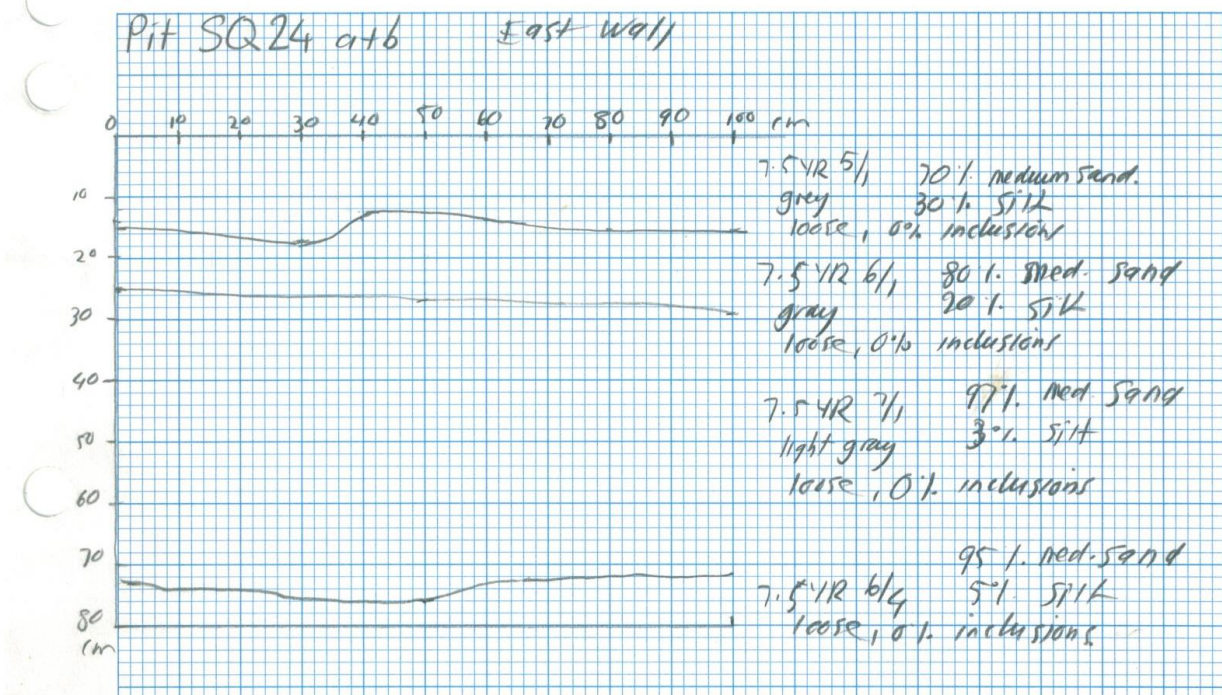 Pit SQ24 a+b East Wall
0 10 20 30 40 50 60 70 80 90 100 cm
10
20
30
40
50
60
70
80
cm
7.5 YR 5/1 70% medium sand.
grey 30% silt
loose, 0% inclusions
7.5 YR 6/1 80% med. sand
gray 20% silt
loose, 0% inclusions
7.5 YR 7/1 97% med sand
light gray 3% silt
loose, 0% inclusions
95% med. sand
7.5 YR 6/4 5% silt
loose, 0% inclusions.